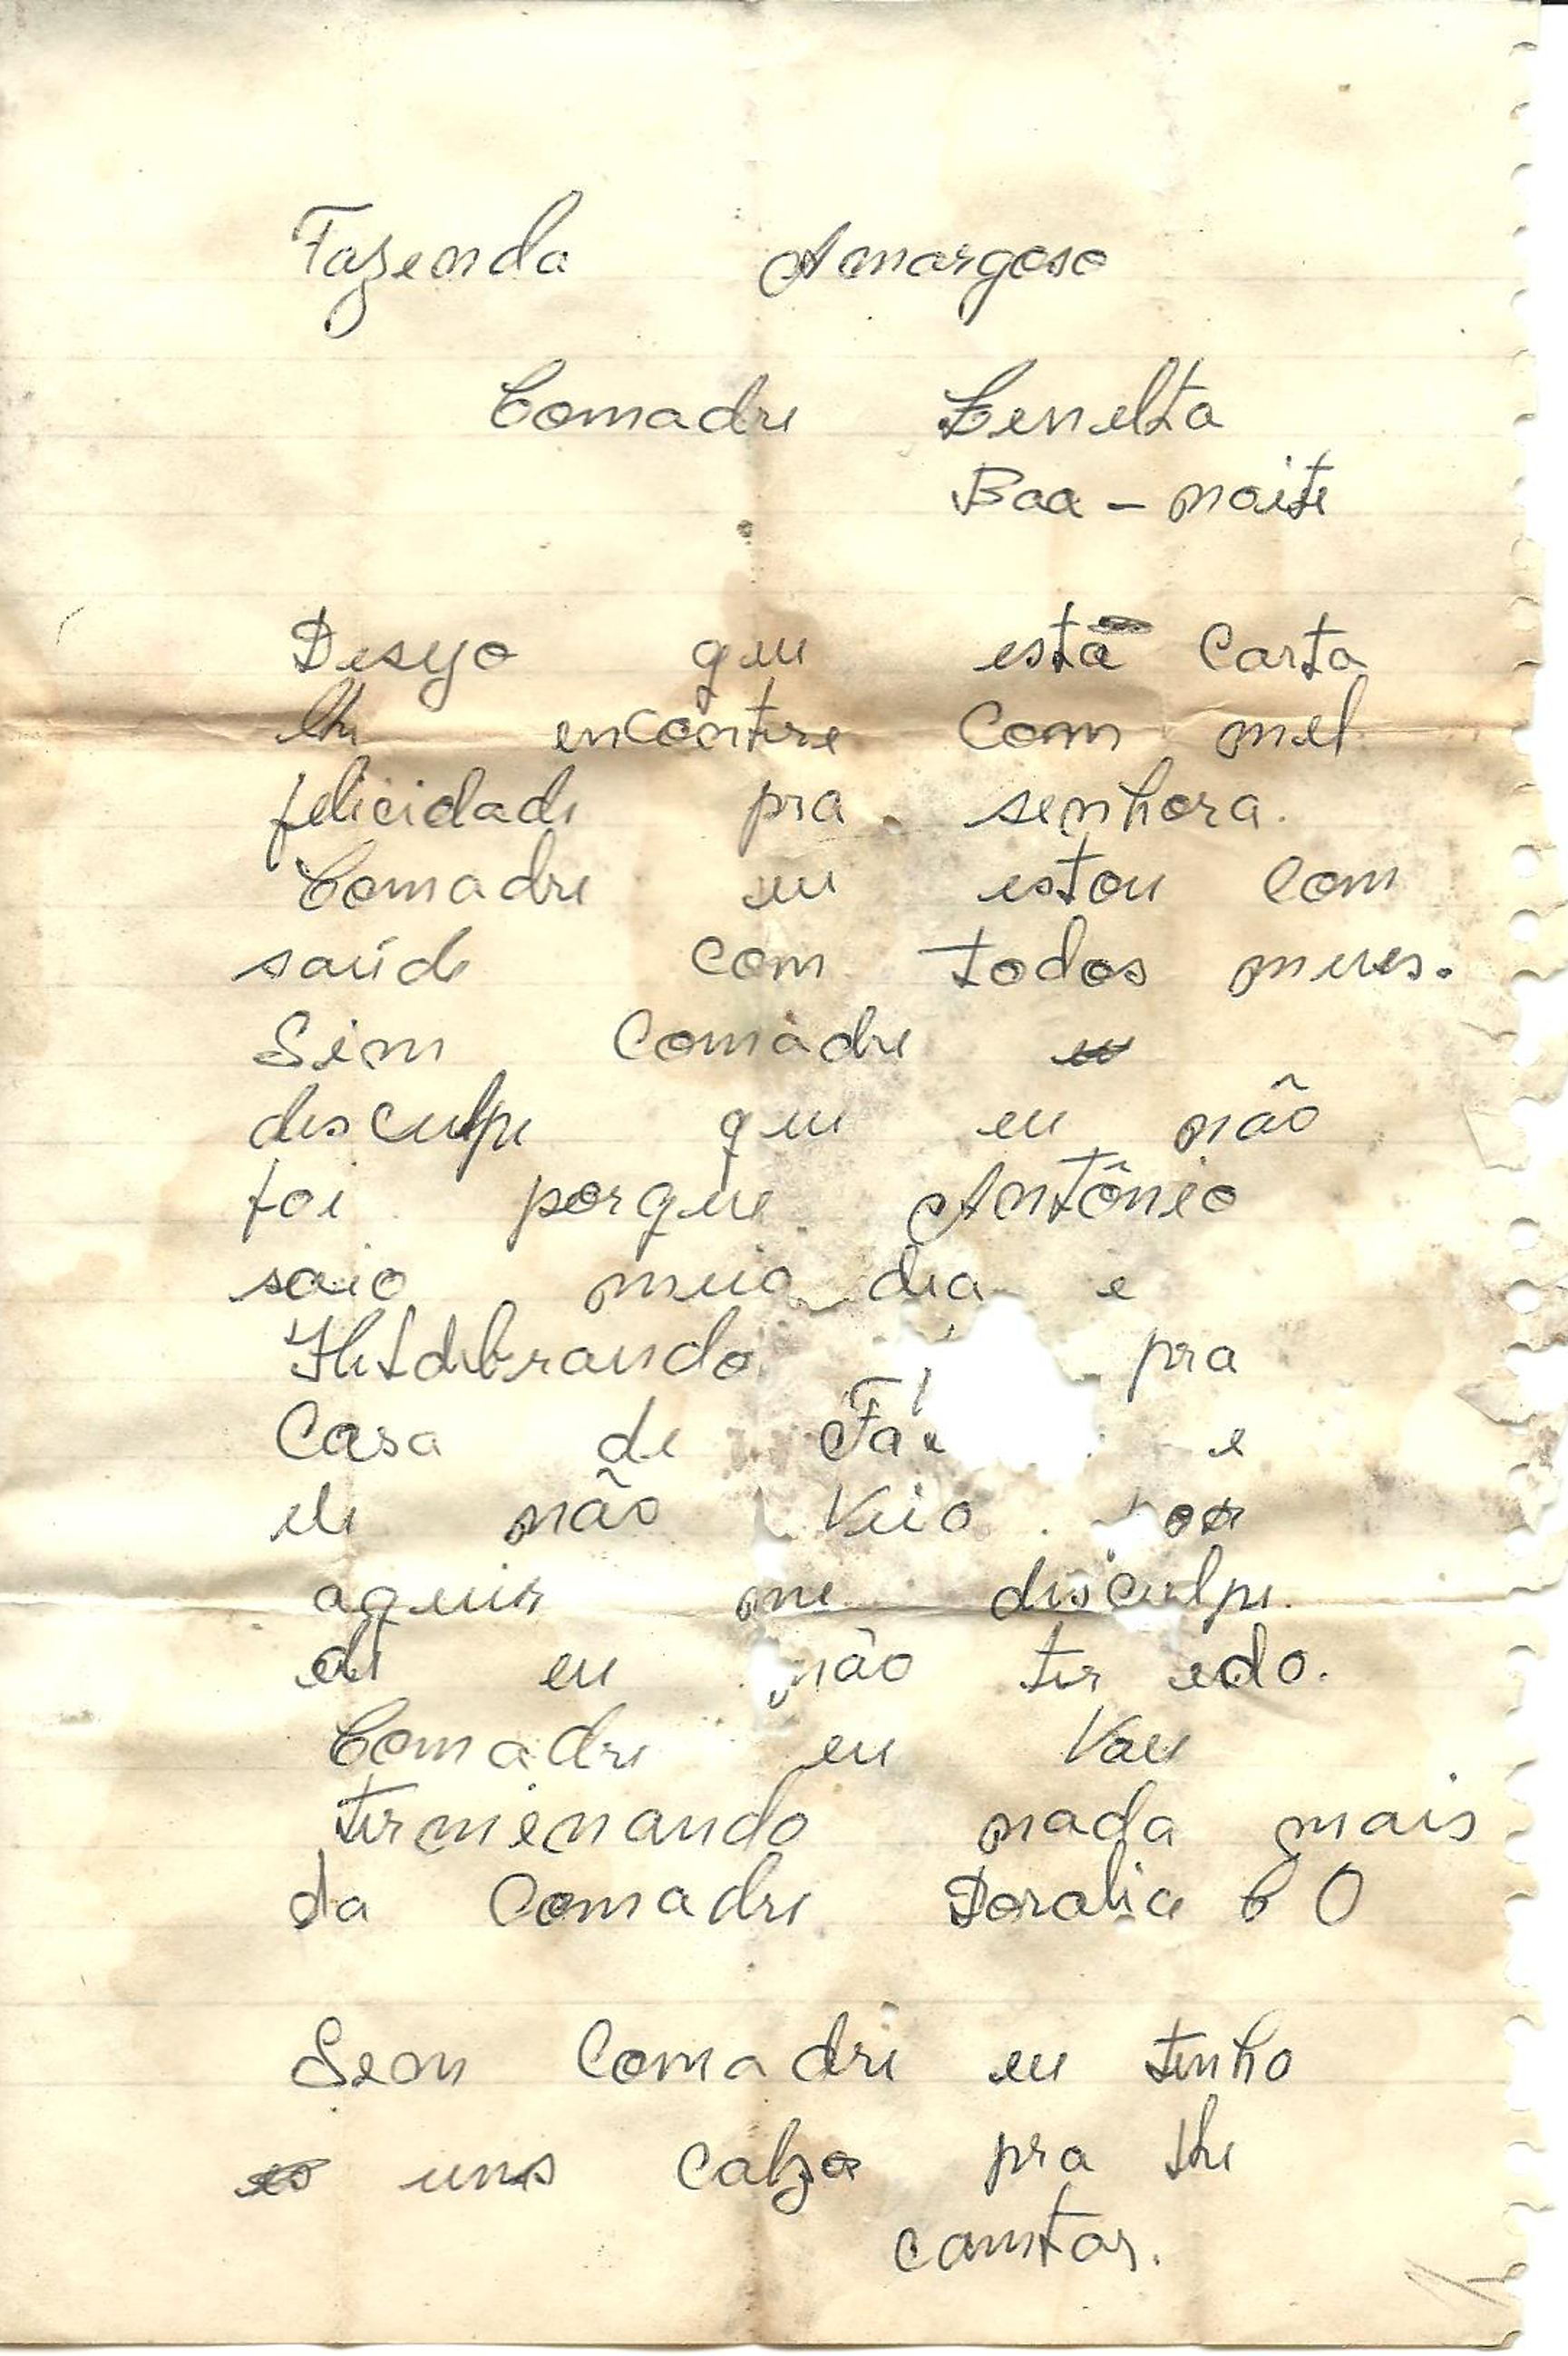 Fazenda Amargoso
Comadre Zenelta
Boa - noite
Desejo que esta carta
lhe encontre com mel
felicidade pra senhora.
Comadre eu estou com
saúde com todos meus.
Sim Comadre
desculpe que eu não
foi porque Antônio
saio meio dia e
Hildebrando pra
Casa de e
ele não veio por
aquir me desculpe
di eu não ter ido.
Comadre eu vou
terminando nada mais
da Comadre Doralice C O
Sim Comadre eu tenho
uns calzo pra lhe
contar.